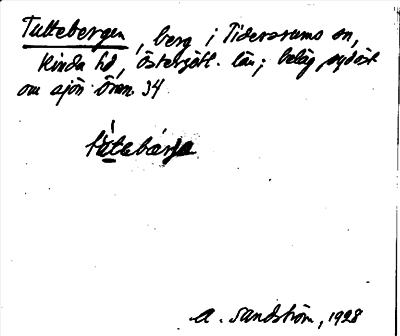 Tuttebergen, berg i Tidersrums sn,
Kinda hd, Östergötl. län; beläg. sydöst
om sjön Ören 34
A. Sandström, 1928